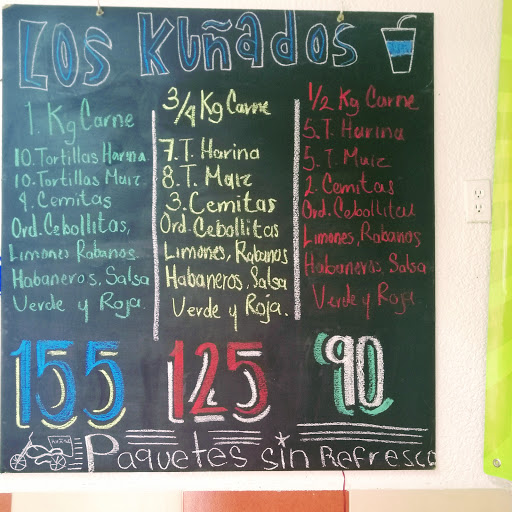 LOS KUÑADOS
1. Kg Carne
10. Tortillas Harina
10. Tortillas Maiz.
4. Cemitas
Ord. Cebollitas,
Limones Rabanos
Habaneros, Salsa
Verde y Roja
155
3/4 Kg Carne
7. T. Harina
8. T. Maiz
3. Cemitas
Ord. Cebollitas
Limones, Rabanos
Habaneros, Salsa
Verde y Roja.
125
1/2 Kg Carne
5. T. Harina
5. T. Maiz
2. Cemitas
Ord. Cebollitas
Limones, Rabanos
Habaneros, Salsa
Verde y Roja
90
Paquetes Sin Refresco